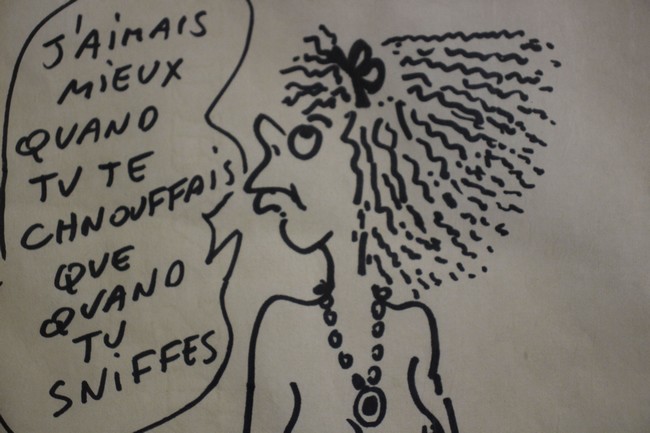 J'AiMAiS
MiEUX
QUAND
TU TE
CHNOUFFAiS
QUE
QUAND
TU
SNiFFES